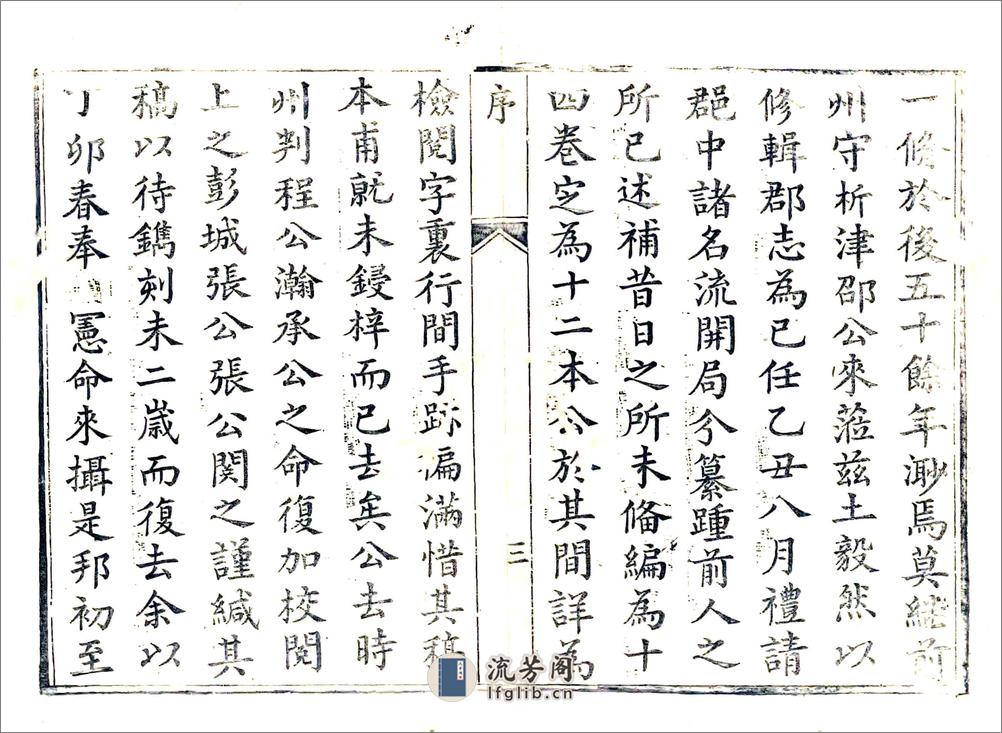 一脩於後五十餘年渺焉莫繼前
州守析津邵公來蒞兹土毅然以
修輯郡志為已任乙丑八月禮請
郡中諸名流開局分纂踵前人之
所已述補昔日之所未俻編為十
四卷定為十二本公於其間詳為
序
三
檢閱字裏行間手跡徧滿惜其稿
本甫就未鋟梓而已去矣公去時
州判程公瀚承公之命復加校閱
上之彭城張公張公閱之謹緘其
稿以待鐫刻未二嵗而復去余以
丁卯春奉
憲命來攝是邦初至
流芳阁
lfglib.cn